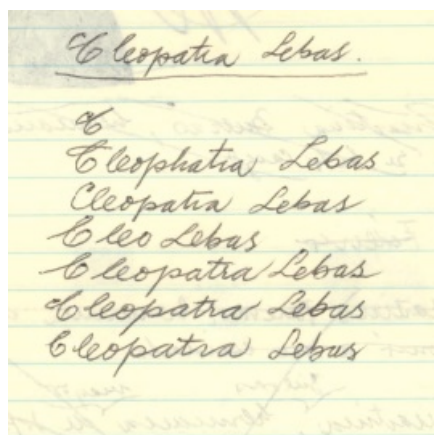 Cleopatra Lebas.
C
Cleophatra Lebas
Cleopatra Lebas
Cleo Lebas
Cleopatra Lebas
Cleopatra Lebas
Cleopatra Lebas